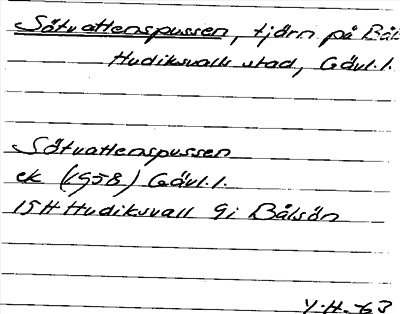 Sötvattenspussen, tjärn på Bål
Hudiksvalls stad, Gävl.l.
Sötvattenspussen
ek (1958) Gävl.l.
15H Hudiksvall 9i Bålsön
Y.H.-63